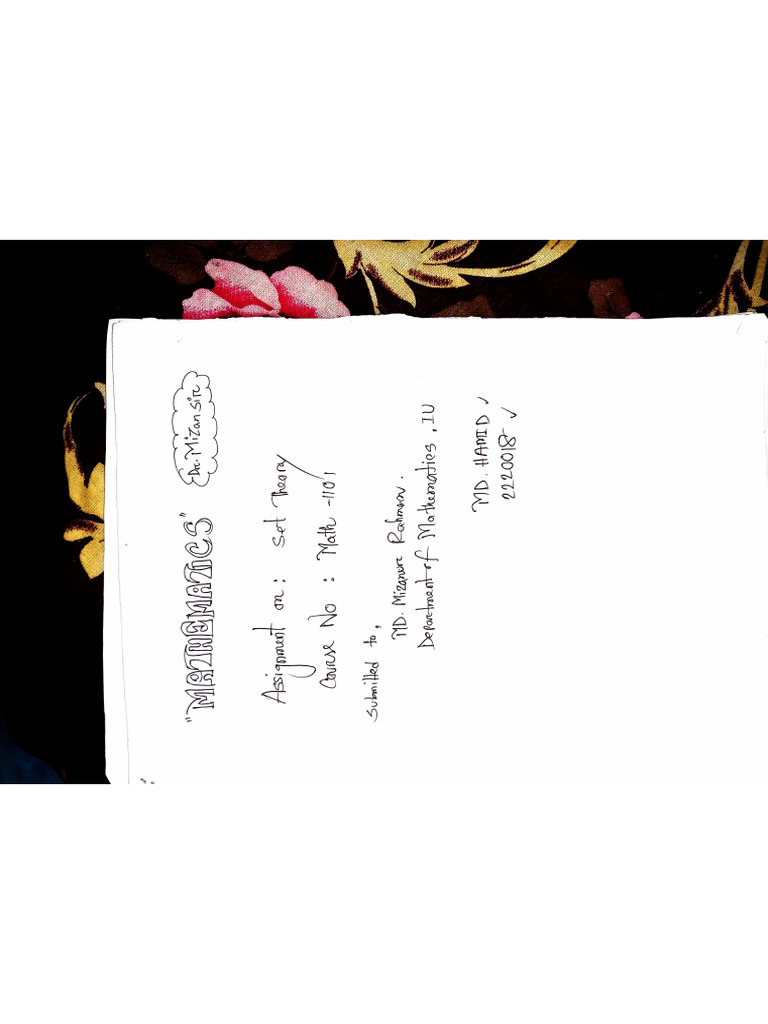 "MATHEMATICS"
Dr. Mizan Sir
Assignment on : Set Theory
Course No : Math -1101
Submitted to,
MD. Mizanur Rahman.
Department of Mathematics, IU
MD. HAMID
2220018